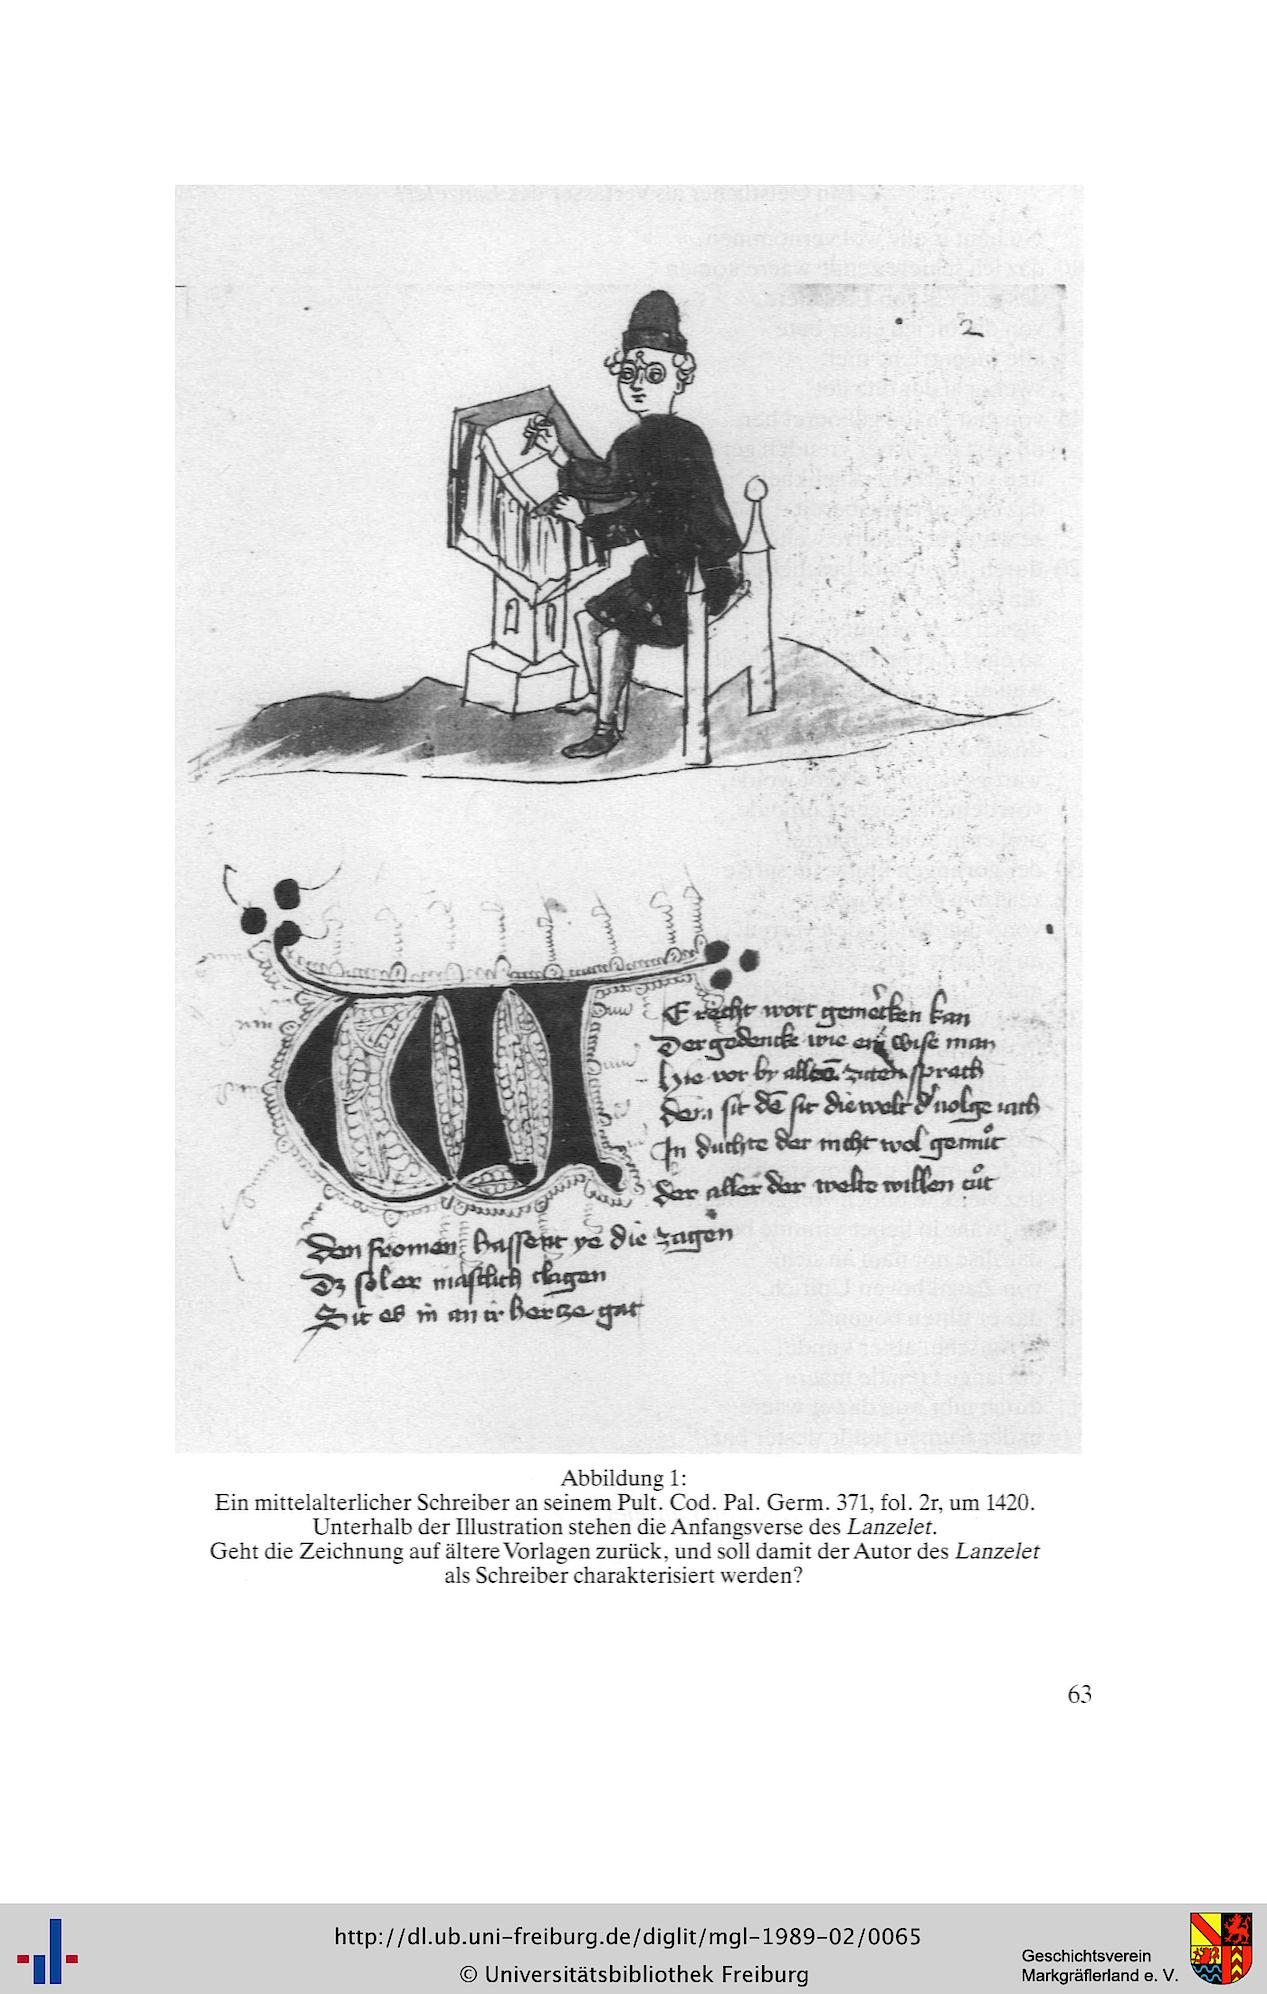 2
W
E recht wort gemercken kan
Der gedencke wie ein wise man
Hie vor by allten ziten sprach
dem sit dē sit die welt dͬ uolge iach
In duchte der nicht wol gemuͦt
der aller der welte willen tuͦt
Den fromen hassent ye die zagen
Dz sol er mastlich clagen
Sit es in an ir hertze gat
Abbildung 1:
Ein mittelalterlicher Schreiber an seinem Pult. Cod. Pal. Germ. 371, fol. 2r, um 1420.
Unterhalb der Illustration stehen die Anfangsverse des Lanzelet.
Geht die Zeichnung auf ältere Vorlagen zurück, und soll damit der Autor des Lanzelet
als Schreiber charakterisiert werden?
63
http://dl.ub.uni-freiburg.de/diglit/mgl-1989-02/0065
© Universitätsbibliothek Freiburg
Geschichtsverein
Markgräflerland e. V.